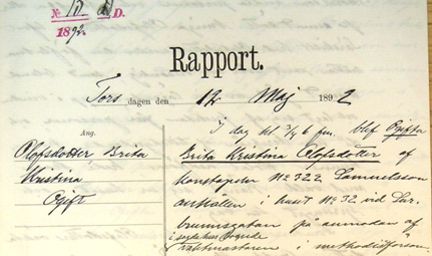 No 10 D.
1892
Rapport.
Tors dagen den 12 Maj 1892
Ang.
Olofsdotter, Brita
Kristina
Ogift
I dag kl f.m. blef Ogifta
Brita Kristina Olofsdotter af
konstapeln No 322 Samuelsson
anhållen i huset No 32 vid Lur-
bruunsgatan på anmodan af
i sysslan